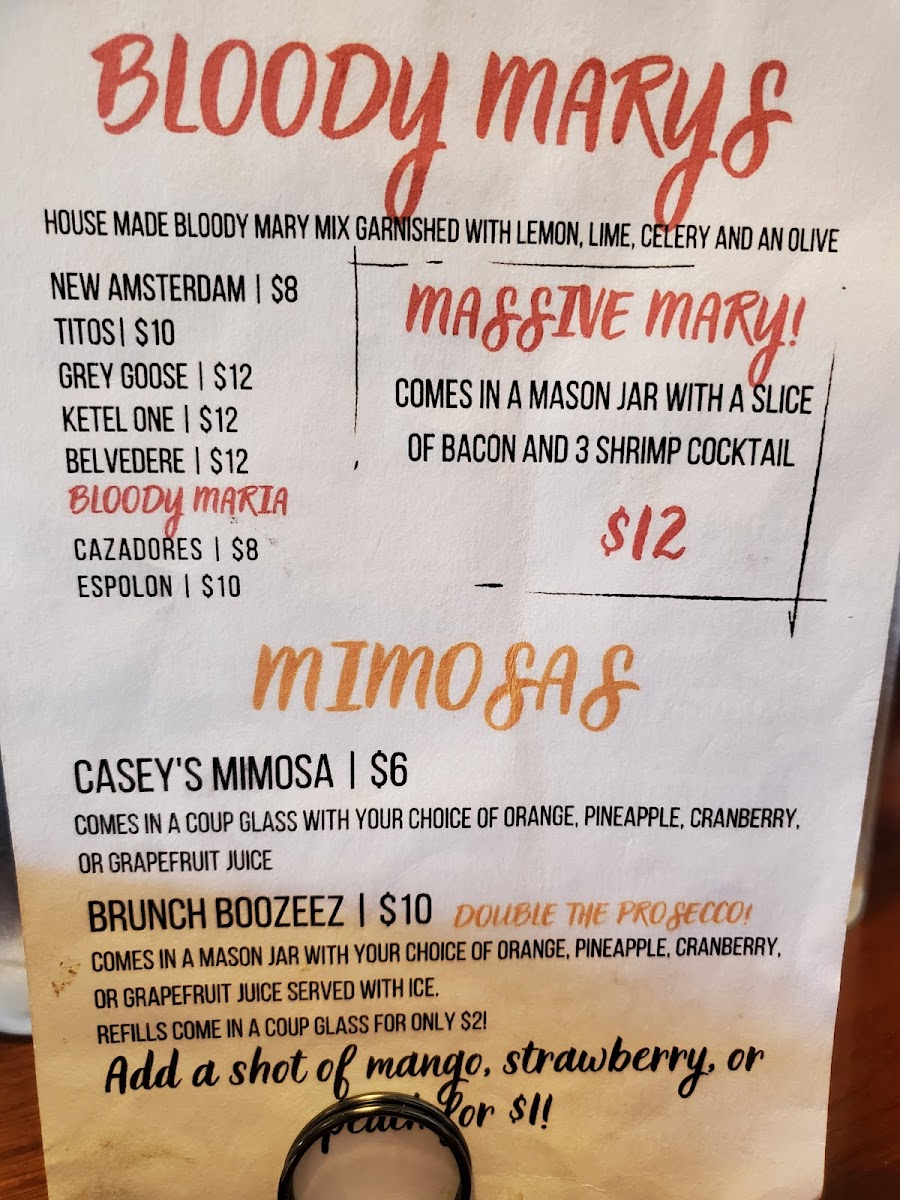 BLOODY MARYS
HOUSE MADE BLOODY MARY MIX GARNISHED WITH LEMON, LIME, CELERY AND AN OLIVE
NEW AMSTERDAM | $8
TITOS| $10
GREY GOOSE | $12
KETEL ONE | $12
BELVEDERE | $12
BLOODY MARIA
CAZADORES | $8
ESPOLON | $10
MASSIVE MARY!
COMES IN A MASON JAR WITH A SLICE
OF BACON AND 3 SHRIMP COCKTAIL
$12
MIMOSAS
CASEY'S MIMOSA | $6
COMES IN A COUP GLASS WITH YOUR CHOICE OF ORANGE, PINEAPPLE, CRANBERRY,
OR GRAPEFRUIT JUICE
BRUNCH BOOZEEZ | $10 DOUBLE THE PROSECCO!
COMES IN A MASON JAR WITH YOUR CHOICE OF ORANGE, PINEAPPLE, CRANBERRY,
OR GRAPEFRUIT JUICE SERVED WITH ICE.
REFILLS COME IN A COUP GLASS FOR ONLY $2!
Add a shot of mango, strawberry, or
for $1!